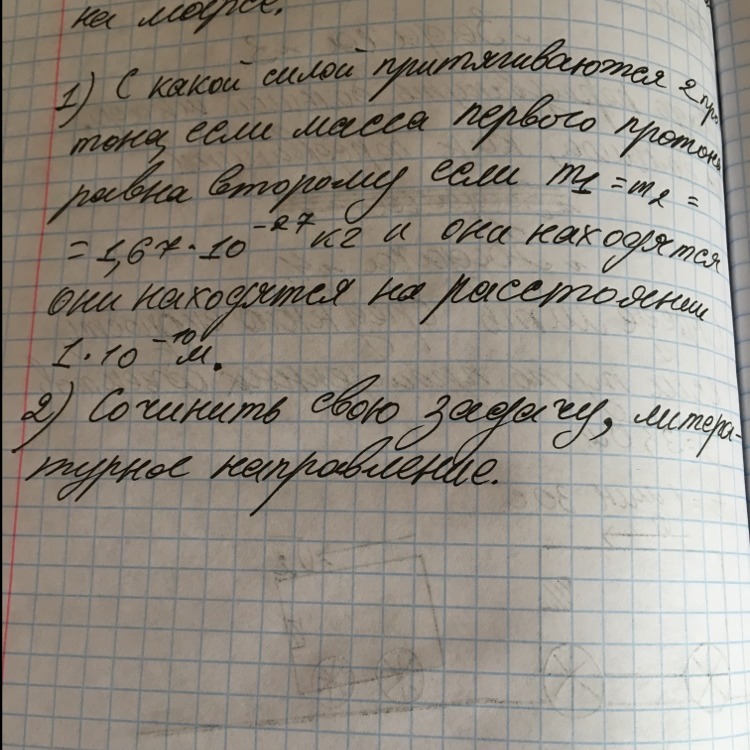 на марсе.
1) С какой силой притягиваются 2 про
тона, если масса первого протона
равна второму если m1 = m2 =
= 1,67 · 10⁻²⁷ кг и они находятся
они находятся на расстоянии
1 · 10⁻¹⁰ м.
2) Сочинить свою задачу, литера-
турное направление.